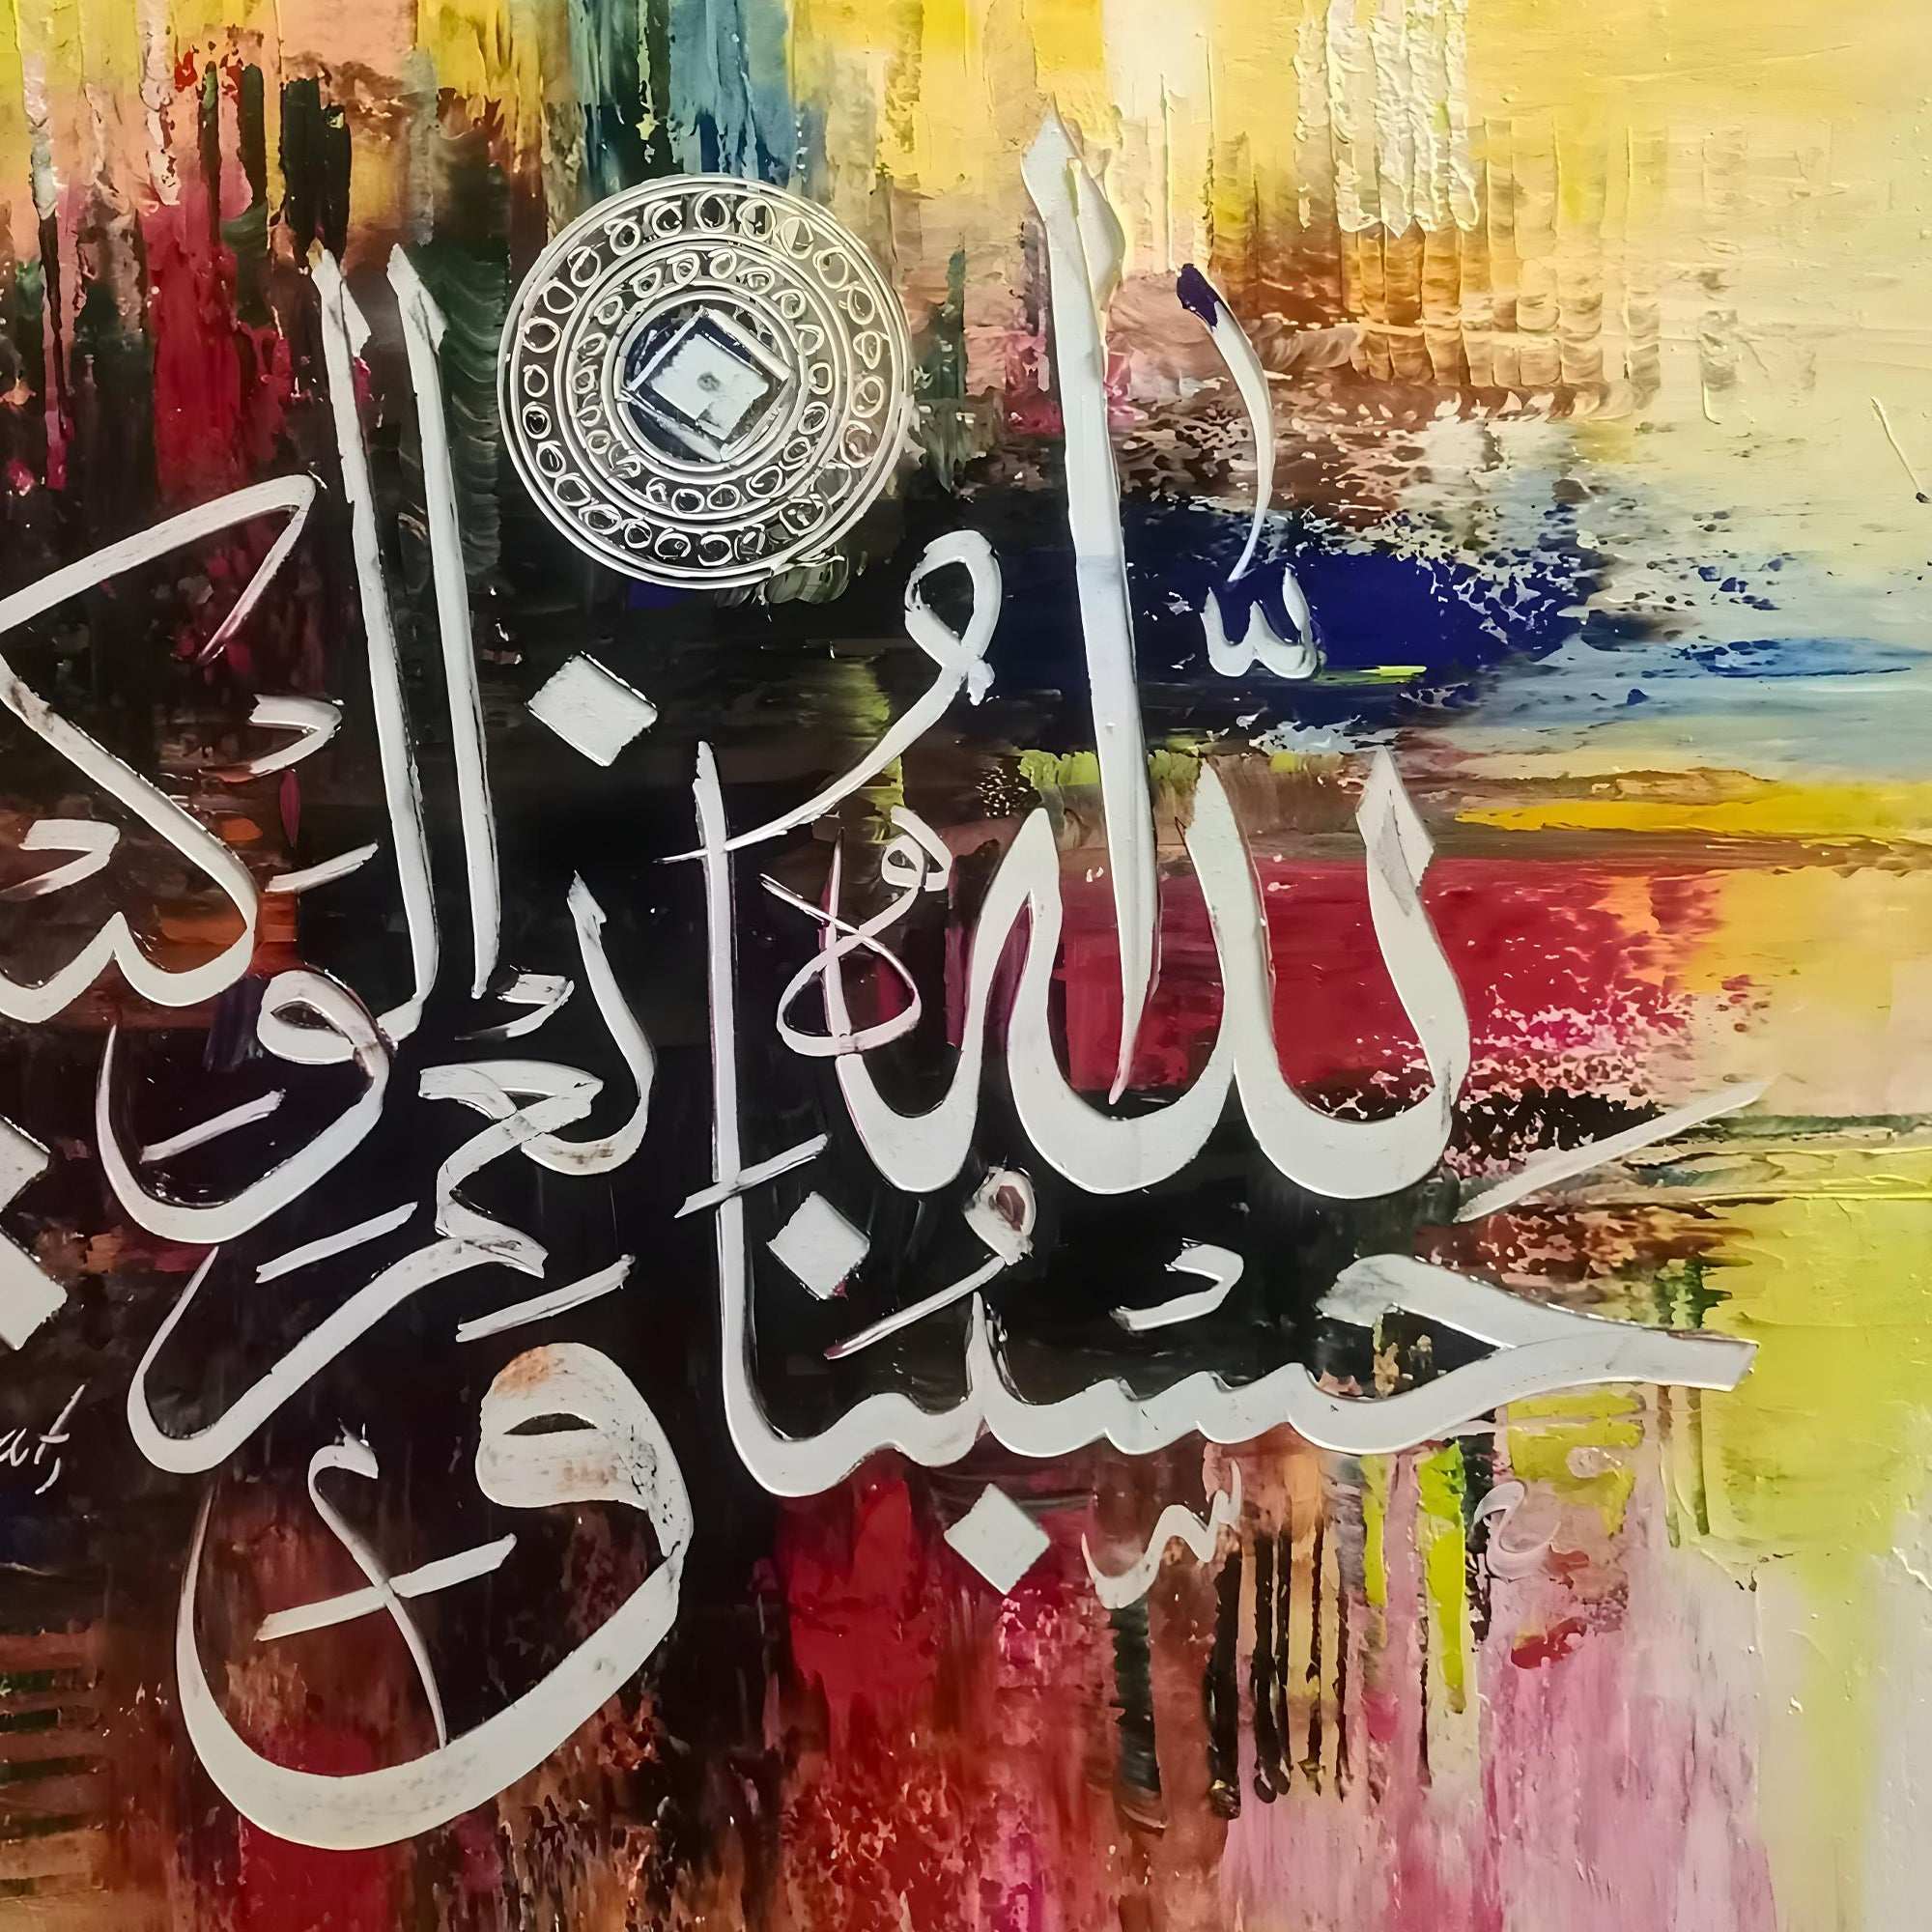 حَسْبُنَا اللَّهُ
وَنِعْمَ الْوَكِيـ